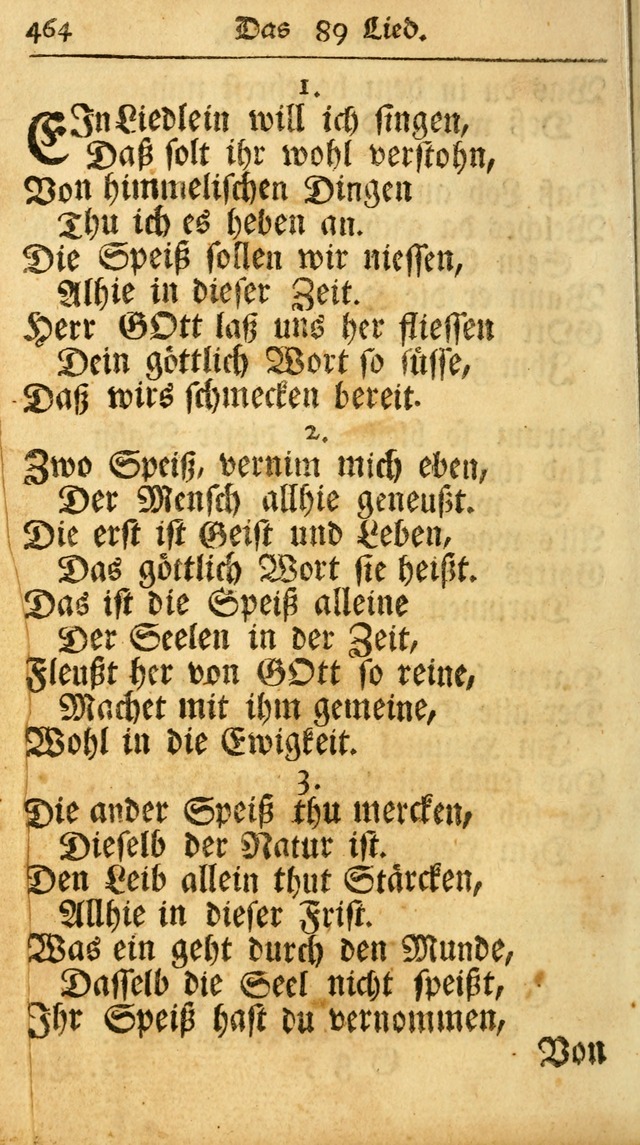 464 Das 89 Lied.
1.
EIn Liedlein will ich singen,
Daß solt ihr wohl verstohn,
Von himmelischen Dingen
Thu ich es heben an.
Die Speiß sollen wir niessen,
Alhie in dieser Zeit.
Herr GOtt laß uns her fliessen
Dein göttlich Wort so süsse,
Daß wirs schmecken bereit.
2.
Zwo Speiß, vernim mich eben,
Der Mensch allhie geneußt.
Die erst ist Geist und Leben,
Das göttlich Wort sie heißt.
Das ist die Speiß alleine
Der Seelen in der Zeit,
Fleußt her von GOtt so reine,
Machet mit ihm gemeine,
Wohl in die Ewigkeit.
3.
Die ander Speiß thu mercken,
Dieselb der Natur ist.
Den Leib allein thut Stärcken,
Allhie in dieser Frist.
Was ein geht durch den Munde,
Dasselb die Seel nicht speißt,
Ihr Speiß hast du vernommen,
Von